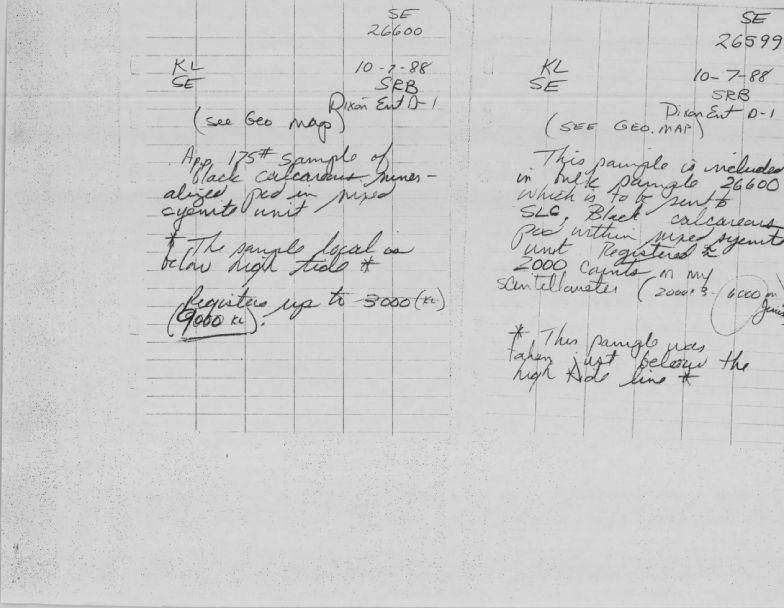 SE
26600
KL
SE
10-7-88
SRB
Dixon Ent D-1
(see Geo map)
App 175# sample of
black calcareous miner-
alized pod in mixed
syenite unit
* The sample local is
below high tide *
Registers up to 3000 (KL)
(9000 KL).
SE
26599
KL
SE
10-7-88
SRB
Dixon Ent D-1
(SEE GEO. MAP)
This sample is included
in bulk sample 26600
which is to be sent to
SLC. Black calcareous
pod within mixed syenite
unit. Registered
2000 counts on my
scintellometer (2000x3 6000 on
* This sample was
taken just below the
high tide line *